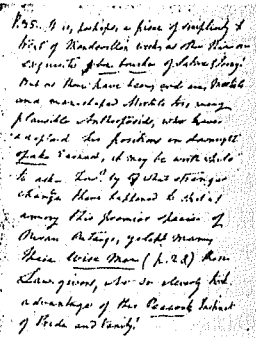 P. 35. It is, perhaps, a piece of simplicity to
treat of Mandeville's works as other than an
exquisite of Satire & Irony
But as there have been, and are, Mortals
and man-shaped Mortals too, very
plausible Anthropöids, who have
adopted his positions in downright
earnest, it may be worth while
to ask how? by what strange
chance there happened to
among this species of
Ouran Outangs, yclept Man,
these wise Men (p. 28) these
Law-givers, who so cleverly took
advantage of this Peacock Instinct
of Pride and Vanity?